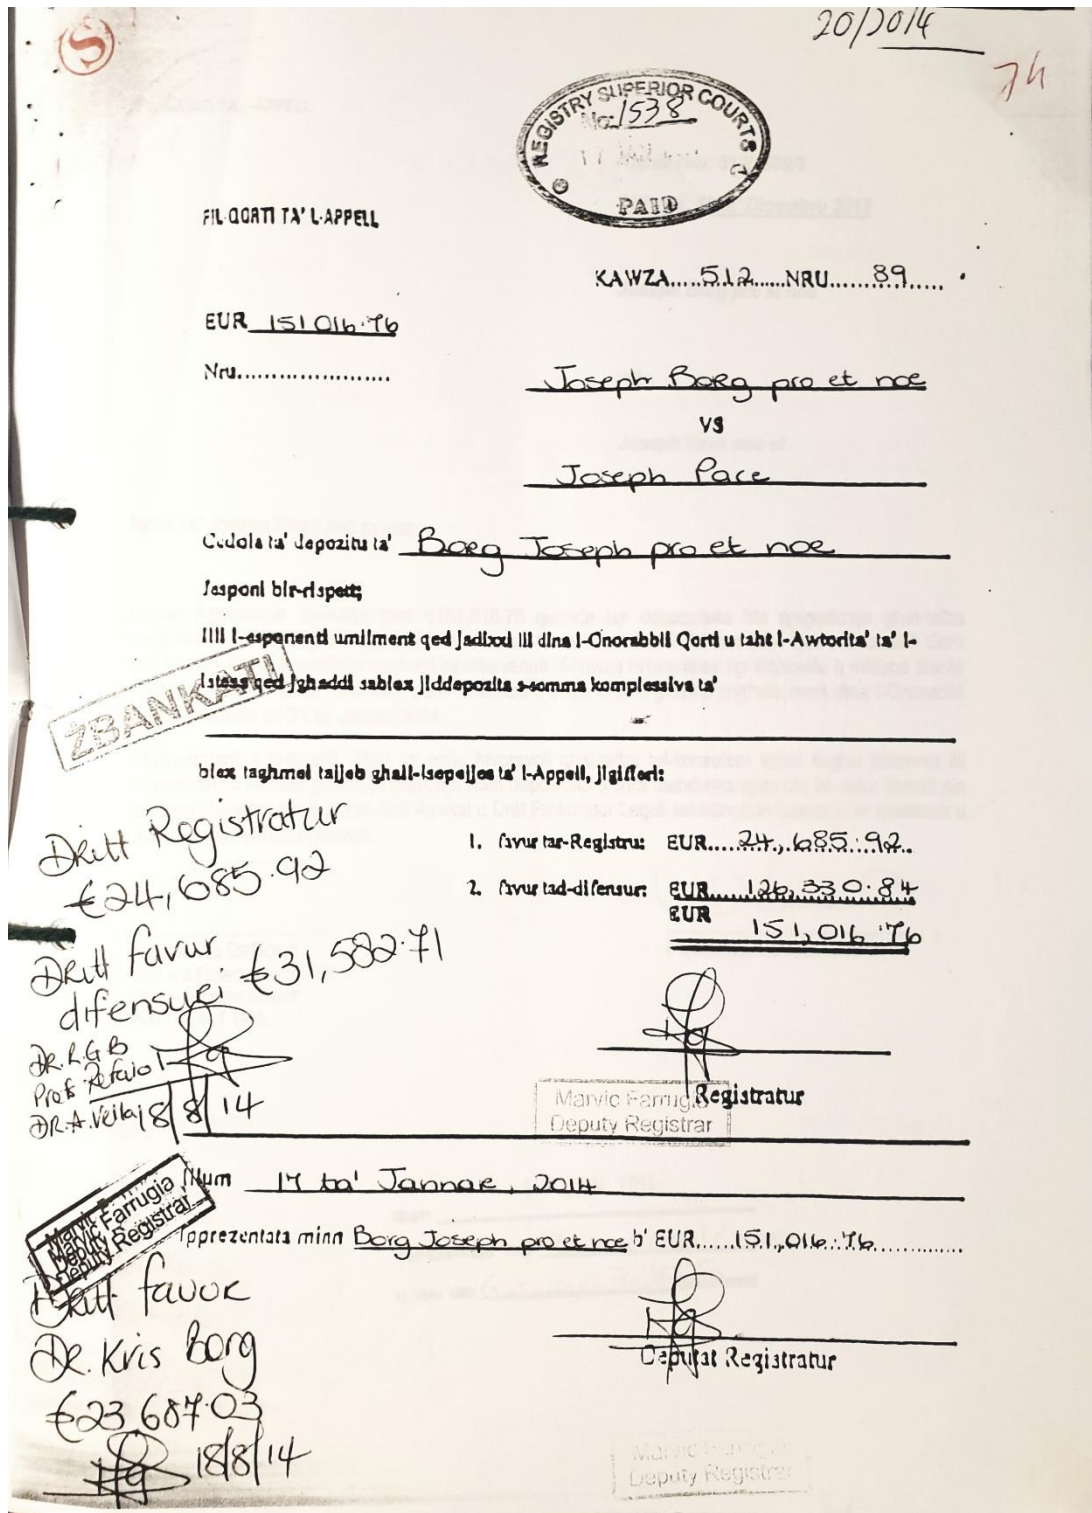 20/2014
S
74
REGISTRY SUPERIOR COURTS
No. 1538
17
PAID
FIL-QORTI TA' L-APPELL
KAWZA.....512......NRU.......89......
EUR 151016.76
Nru......................
Joseph Borg pro et noe
VS
Joseph Pace
Cedola ta' depozitu ta' Borg Joseph pro et noe
Jesponi bir-rispett;
Illi l-esponenti umilment qed jadixxi lil dina l-Onorabbli Qorti u taht l-Awtorita' ta' l-
Istess qed jghaddi sabiex jiddepozita s-somma komplessiva ta'
ŻBANKATI
biex taghmel tajjeb ghall-ispejjes ta' l-Appell, jigifieri:
Dritt Registratur
€24,685.92
1. favur tar-Registru: EUR....24,685.92..
2. favur tad-difensur: EUR....126,330.84
EUR 151,016.76
Dritt favur
difensuri €31,582.71
Dr. R.G.B
Prof.
Dr. A.
18/8/14
Registratur
Marvic Farrugia
Deputy Registrar
Illum 17 ta' Jannar, 2014
Marvic Farrugia
Deputy Registrar
Ipprezentata minn Borg Joseph pro et noe b' EUR.....151,016.76..............
Dritt favur
Dr. Kris Borg
€23,687.03
18/8/14
Deputat Registratur
Marvic Farrugia
Deputy Registrar